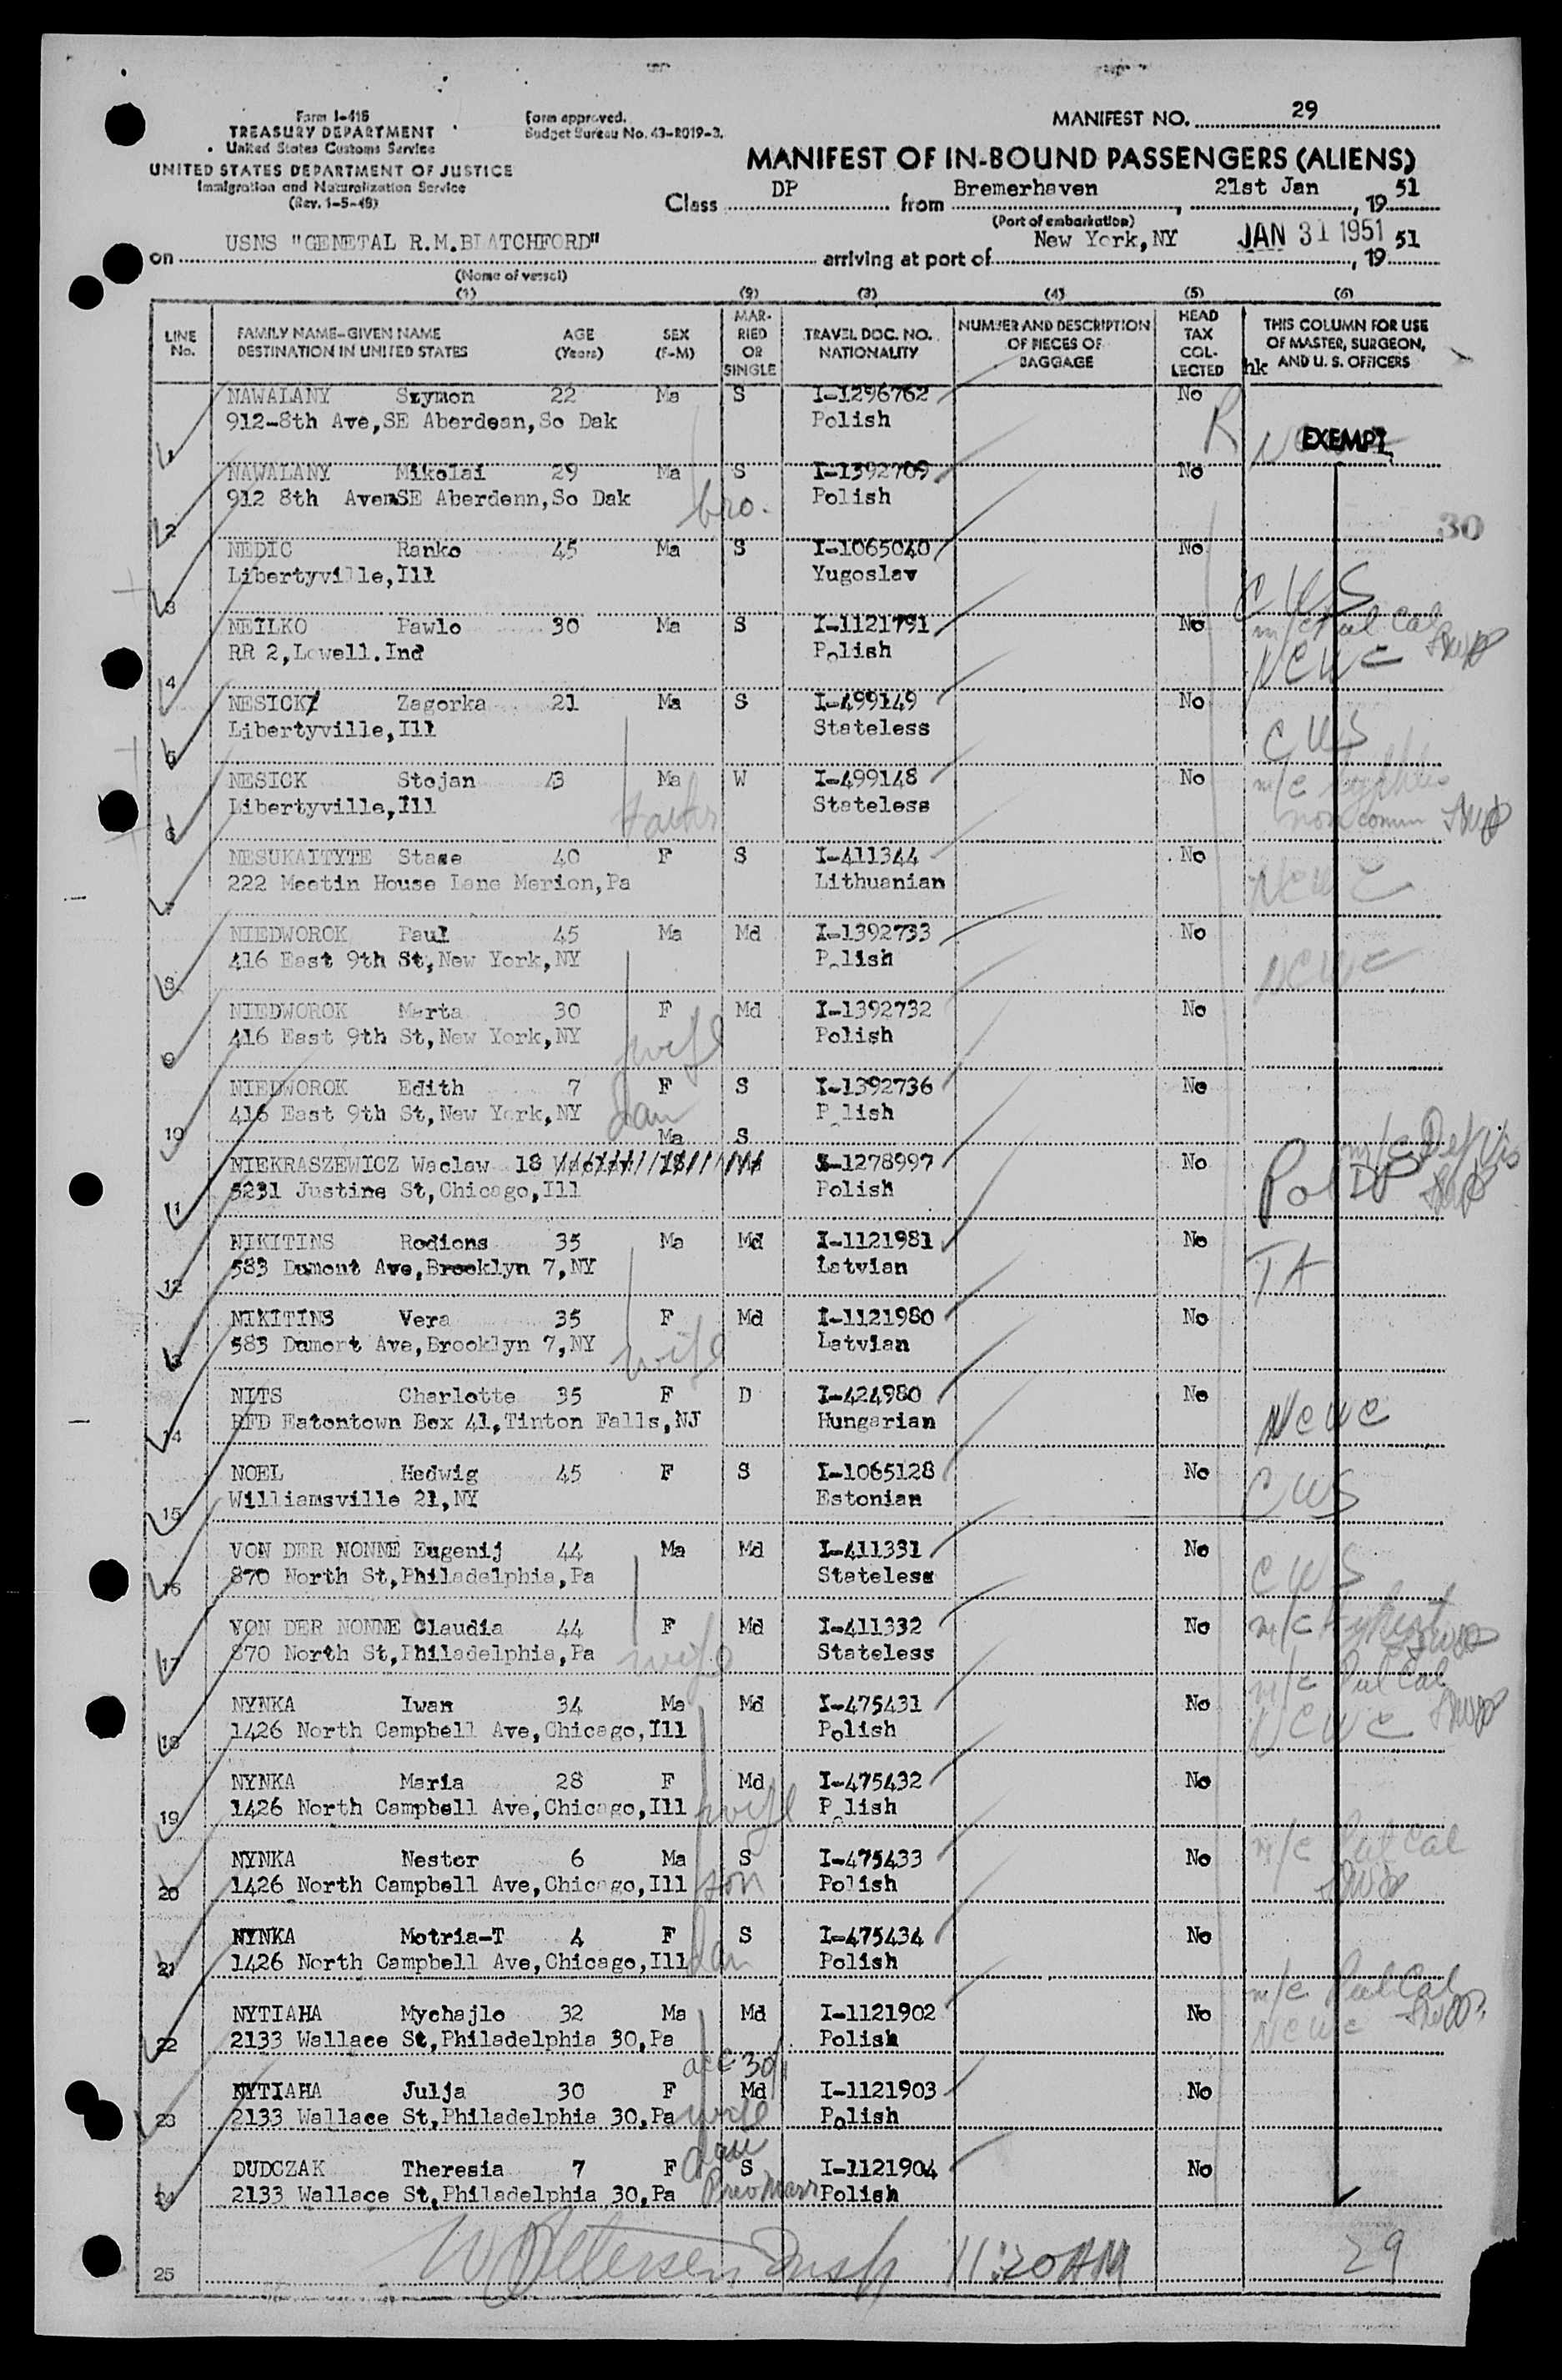 Form I-418
TREASURY DEPARTMENT
United States Customs Service
UNITED STATES DEPARTMENT OF JUSTICE
Immigration and Naturalization Service
(Rev. 1-5-48)
Form approved.
Budget Bureau No. 43-R019-3.
MANIFEST NO. 29
MANIFEST OF IN-BOUND PASSENGERS (ALIENS)
Class DP from Bremerhaven, 21st Jan, 19 51
(Port of embarkation)
on USNS "GENETAL R.M.BLATCHFORD" arriving at port of New York,NY JAN 31 1951, 19 51
(Name of vessel)
(1) (2) (3) (4) (5) (6)
LINE No. FAMILY NAME–GIVEN NAME DESTINATION IN UNITED STATES AGE (Years) SEX (F-M) MARRIED OR SINGLE TRAVEL DOC. NO. NATIONALITY NUMBER AND DESCRIPTION OF PIECES OF BAGGAGE HEAD TAX COLLECTED hk THIS COLUMN FOR USE OF MASTER, SURGEON, AND U. S. OFFICERS
NAWALANY Szymon 22 Ma S I-1296762 No
1 912-8th Ave,SE Aberdean,So Dak Polish R EXEMPT
NAWALANY Mikolai 29 Ma S I-1392709 No
2 912 8th AvenSE Aberdenn,So Dak bro. Polish
30
NEDIC Ranko 45 Ma S I-1065040 No
3 Libertyville,Ill Yugoslav CWS
NEILKO Pawlo 30 Ma S I-1121791 No m/c Pul Cal
4 RR 2,Lowell.Ind Polish NCWC
NESICK Zagorka 21 Ma S I-499149 No
5 Libertyville,Ill Stateless CWS
NESICK Stojan 43 Ma W I-499148 No m/c
6 Libertyville,Ill father Stateless non comm
NESUKAITYTE Stase 40 F S I-411344 No
7 222 Meetin House Lane Merion,Pa Lithuanian NCWC
NIEDWOROK Paul 45 Ma Md I-1392733 No
8 416 East 9th St,New York,NY Polish NCWC
NIEDWOROK Marta 30 F Md I-1392732 No
9 416 East 9th St,New York,NY wife Polish
NIEDWOROK Edith 7 F S I-1392736 No
10 416 East 9th St,New York,NY dau Polish
Ma S
NIEKRASZEWICZ Waclaw 18 I-1278997 No m/c Def Vis
11 5231 Justine St,Chicago,Ill Polish Pol DP
NIKITINS Rodions 35 Ma Md I-1121981 No
12 583 Dumont Ave,Brooklyn 7,NY Latvian TA
NIKITINS Vera 35 F Md I-1121980 No
13 583 Dumont Ave,Brooklyn 7,NY wife Latvian
NITS Charlotte 35 F D I-424980 No
14 RFD Eatontown Box 41,Tinton Falls,NJ Hungarian NCWC
NOEL Hedwig 45 F S I-1065128 No
15 Williamsville 21,NY Estonian CWS
VON DER NONNE Eugenij 44 Ma Md I-411331 No
16 870 North St,Philadelphia,Pa Stateless CWS
VON DER NONNE Claudia 44 F Md I-411332 No m/c
17 870 North St,Philadelphia,Pa wife Stateless
m/c Pul Cal
NYNKA Iwan 34 Ma Md I-475431 No
18 1426 North Campbell Ave,Chicago,Ill Polish NCWC
NYNKA Maria 28 F Md I-475432 No
19 1426 North Campbell Ave,Chicago,Ill wife Polish
NYNKA Nestor 6 Ma S I-475433 No m/c Pul Cal
20 1426 North Campbell Ave,Chicago,Ill son Polish
NYNKA Motria-T 4 F S I-475434 No
21 1426 North Campbell Ave,Chicago,Ill dau Polish
m/c Pul Cal
NYTIAHA Mychajlo 32 Ma Md I-1121902 No
22 2133 Wallace St,Philadelphia 30,Pa Polish NCWC
acc 30/1
NYTIAHA Julja 30 F Md I-1121903 No
23 2133 Wallace St,Philadelphia 30,Pa wife Polish
dau
DUDCZAK Theresia 7 F S I-1121904 No
24 2133 Wallace St,Philadelphia 30,Pa Prev Marr Polish
25 Insp 11:20 AM 29